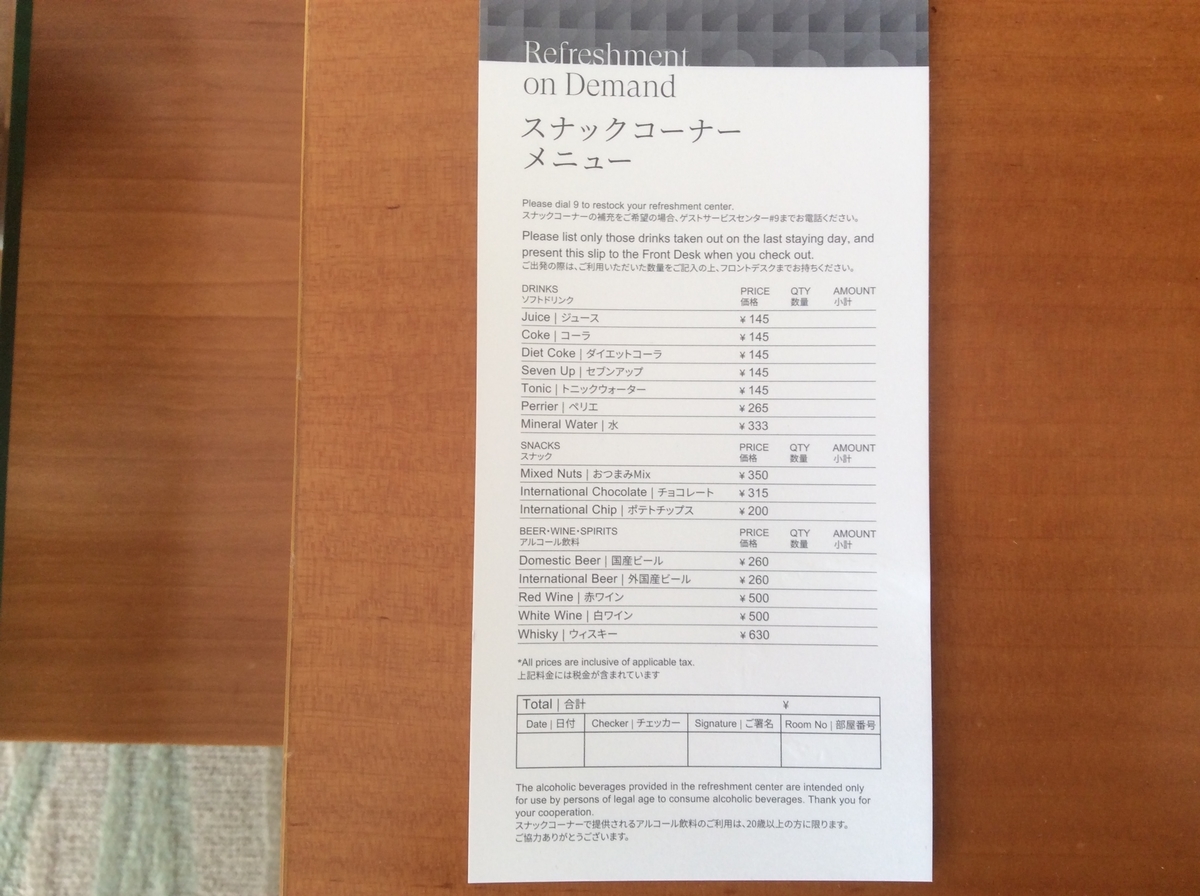 Refreshment
on Demand
スナックコーナー
メニュー
Please dial 9 to restock your refreshment center.
スナックコーナーの補充をご希望の場合、ゲストサービスセンター#9までお電話ください。
Please list only those drinks taken out on the last staying day, and
present this slip to the Front Desk when you check out.
ご出発の際は、ご利用いただいた数量をご記入の上、フロントデスクまでお持ちください。
DRINKS PRICE QTY AMOUNT
ソフトドリンク 価格 数量 小計
Juice | ジュース ¥ 145
Coke | コーラ ¥ 145
Diet Coke | ダイエットコーラ ¥ 145
Seven Up | セブンアップ ¥ 145
Tonic | トニックウォーター ¥ 145
Perrier | ペリエ ¥ 265
Mineral Water | 水 ¥ 333
SNACKS PRICE QTY AMOUNT
スナック 価格 数量 小計
Mixed Nuts | おつまみMix ¥ 350
International Chocolate | チョコレート ¥ 315
International Chip | ポテトチップス ¥ 200
BEER・WINE・SPIRITS PRICE QTY AMOUNT
アルコール飲料 価格 数量 小計
Domestic Beer | 国産ビール ¥ 260
International Beer | 外国産ビール ¥ 260
Red Wine | 赤ワイン ¥ 500
White Wine | 白ワイン ¥ 500
Whisky | ウィスキー ¥ 630
*All prices are inclusive of applicable tax.
上記料金には税金が含まれています
Total | 合計 ¥
Date | 日付 Checker | チェッカー Signature | ご署名 Room No | 部屋番号
The alcoholic beverages provided in the refreshment center are intended only
for use by persons of legal age to consume alcoholic beverages. Thank you for
your cooperation.
スナックコーナーで提供されるアルコール飲料のご利用は、20歳以上の方に限ります。
ご協力ありがとうございます。